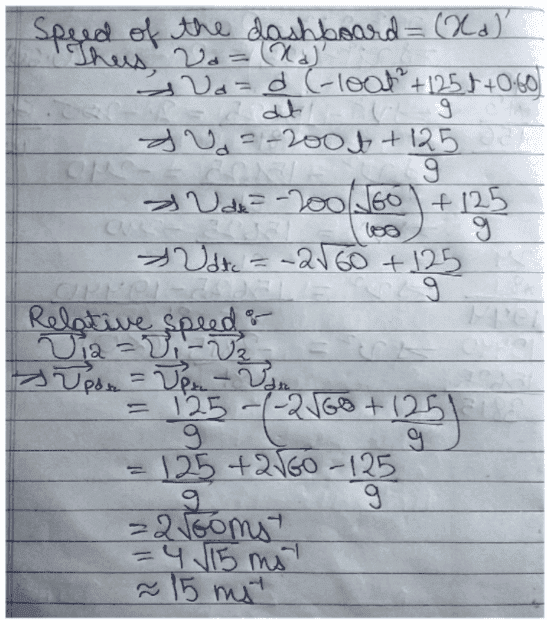 Speed of the dashboard = (x_d)'
Thus, v_d = (x_d)'
→ v_d = d/dt (-100t² + 125/9 t + 0.60)
→ v_d = -200t + 125/9
→ v_dx = -200(√60/100) + 125/9
→ v_dx = -2√60 + 125/9
Relative speed :-
v⃗_12 = v⃗_1 - v⃗_2
→ v⃗_pdx = v⃗_px - v⃗_dx
= 125/9 - (-2√60 + 125/9)
= 125/9 + 2√60 - 125/9
= 2√60 ms⁻¹
= 4√15 ms⁻¹
≈ 15 ms⁻¹